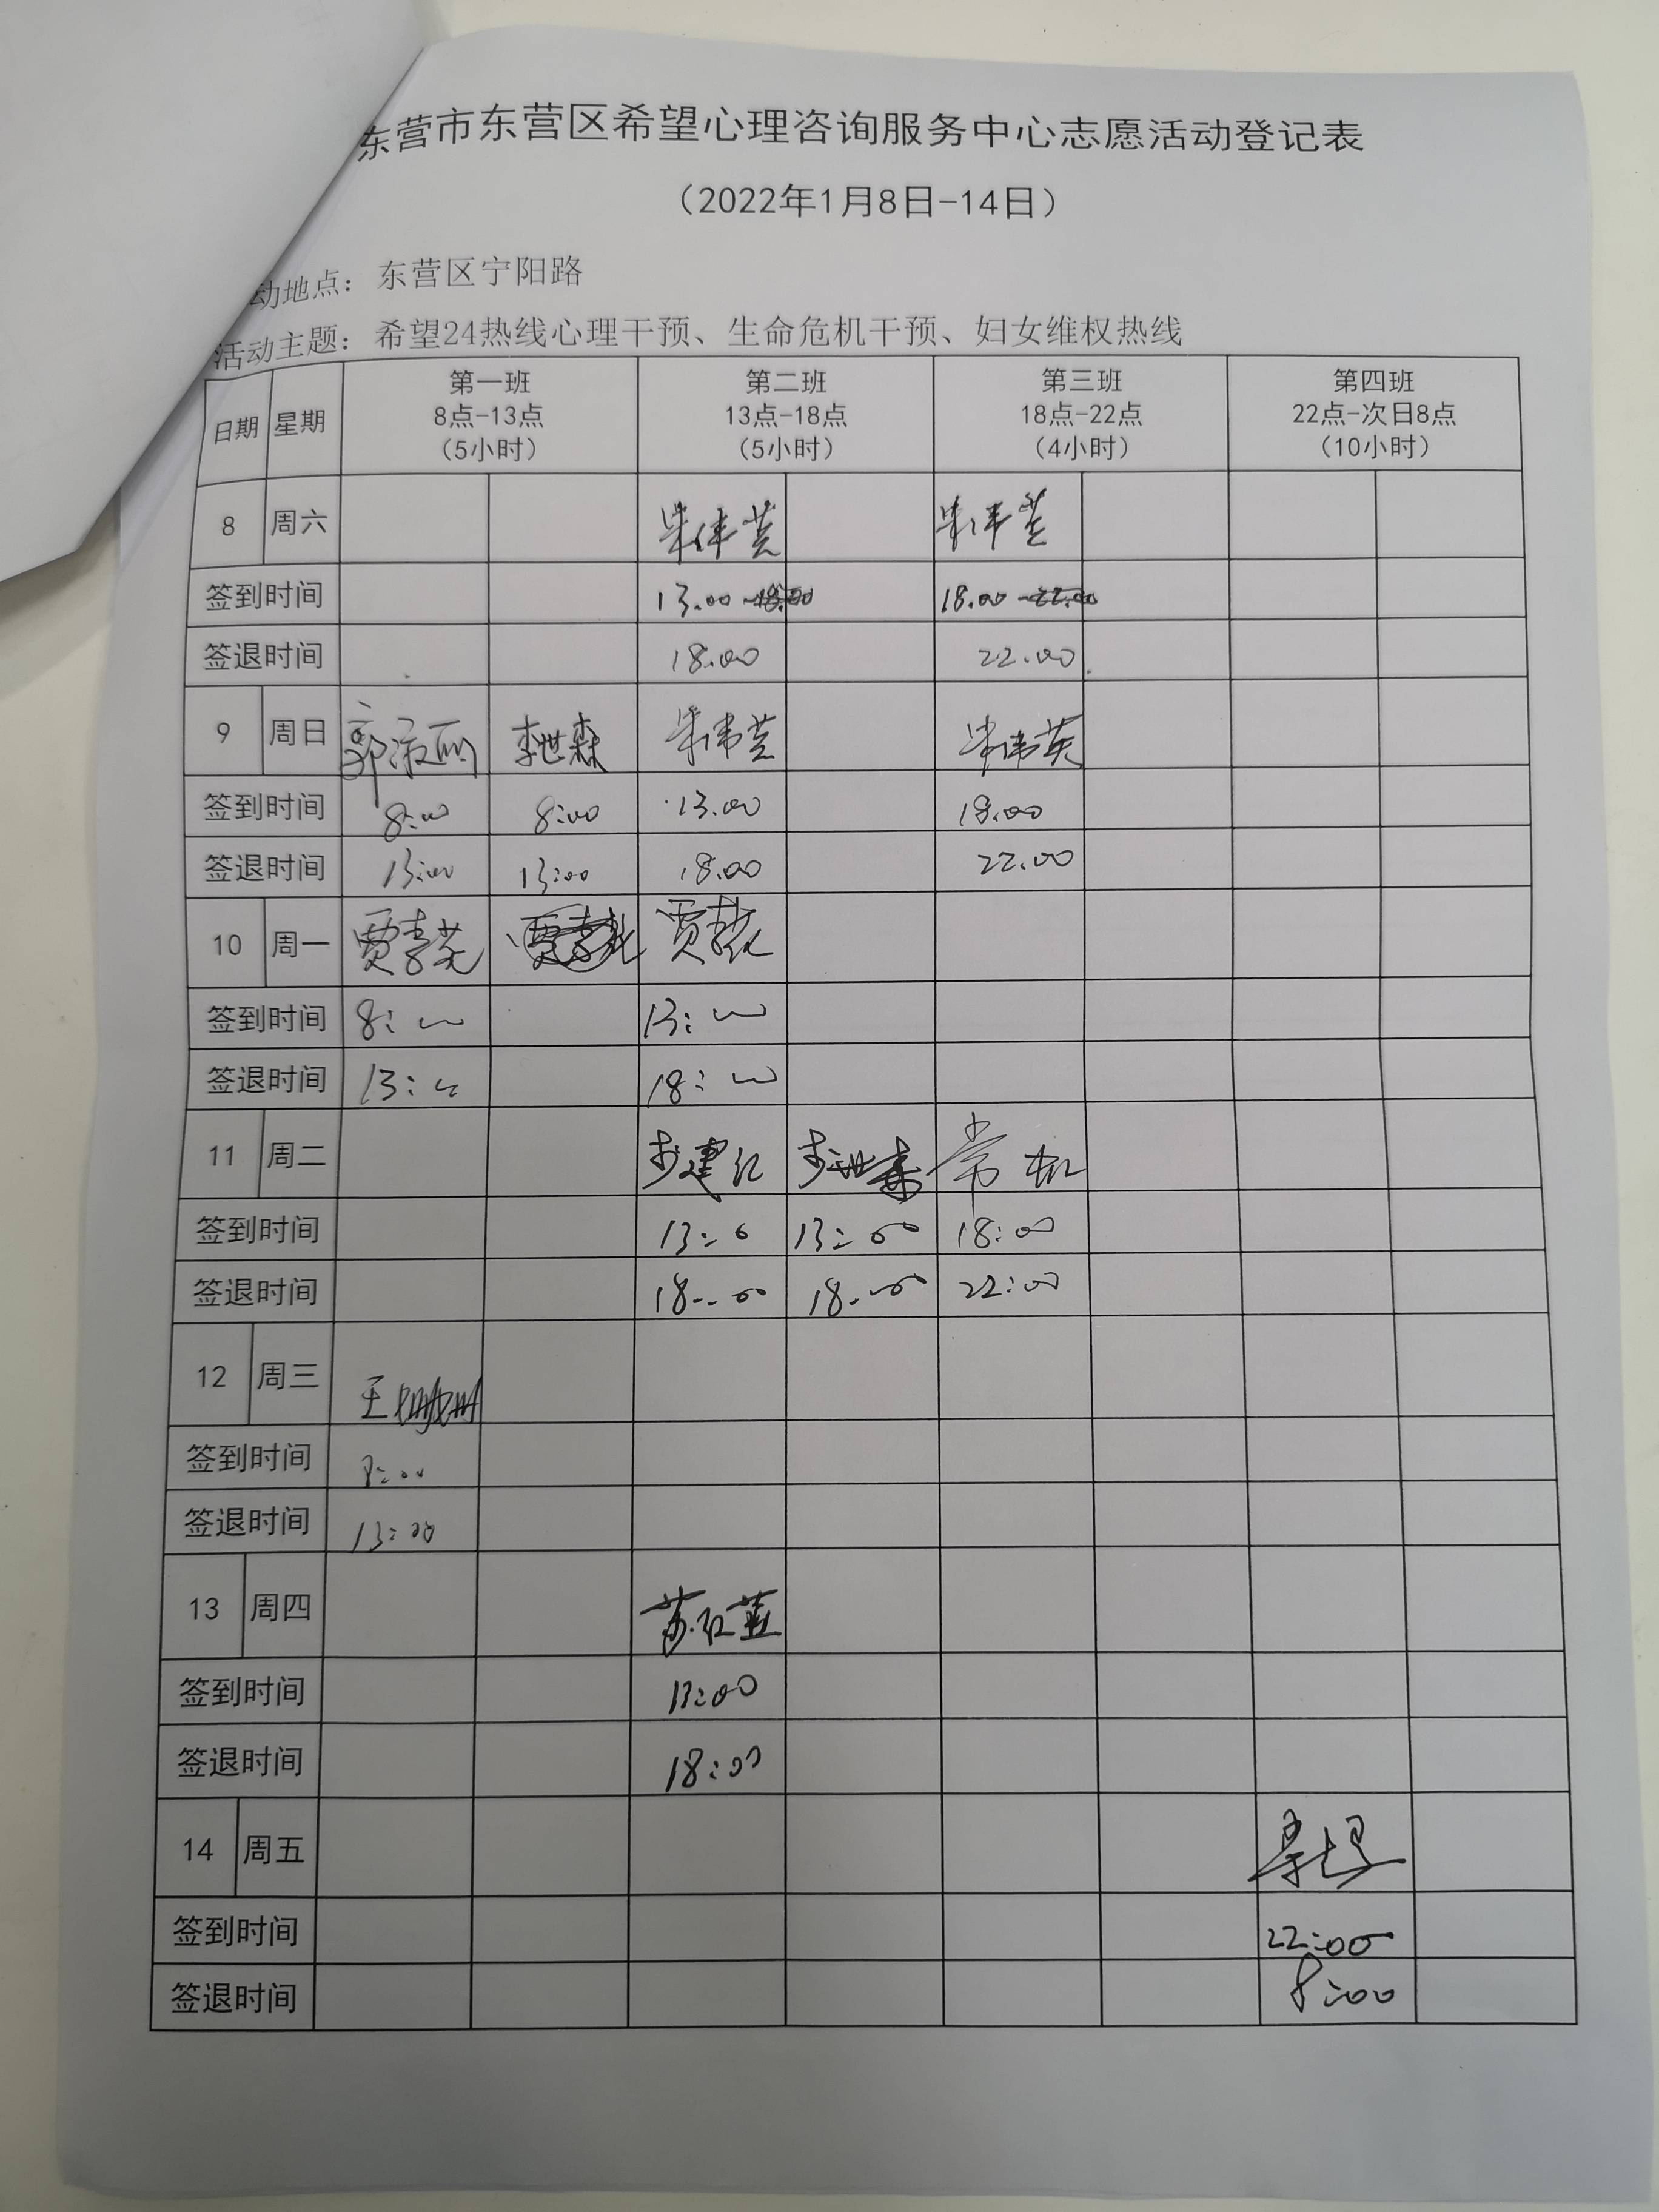 东营市东营区希望心理咨询服务中心志愿活动登记表
（2022年1月8日-14日）
动地点：东营区宁阳路
活动主题：希望24热线心理干预、生命危机干预、妇女维权热线
日期 星期 第一班 8点-13点 （5小时） 第二班 13点-18点 （5小时） 第三班 18点-22点 （4小时） 第四班 22点-次日8点 （10小时）
8 周六
签到时间 13.00 18.00
签退时间 18.00 22.00
9 周日 郭淑丽 李世森
签到时间 8:00 8:00 13.00 18.00
签退时间 13:00 13:00 18.00 22.00
10 周一
签到时间 8:00 13:00
签退时间 13:00 18:00
11 周二 步建红 常虹
签到时间 13:00 18:00
签退时间 18:00 18:00 22:00
12 周三 王
签到时间 8:00
签退时间 13:00
13 周四 苏红蓝
签到时间 13:00
签退时间 18:00
14 周五
签到时间 22:00
签退时间 8:00